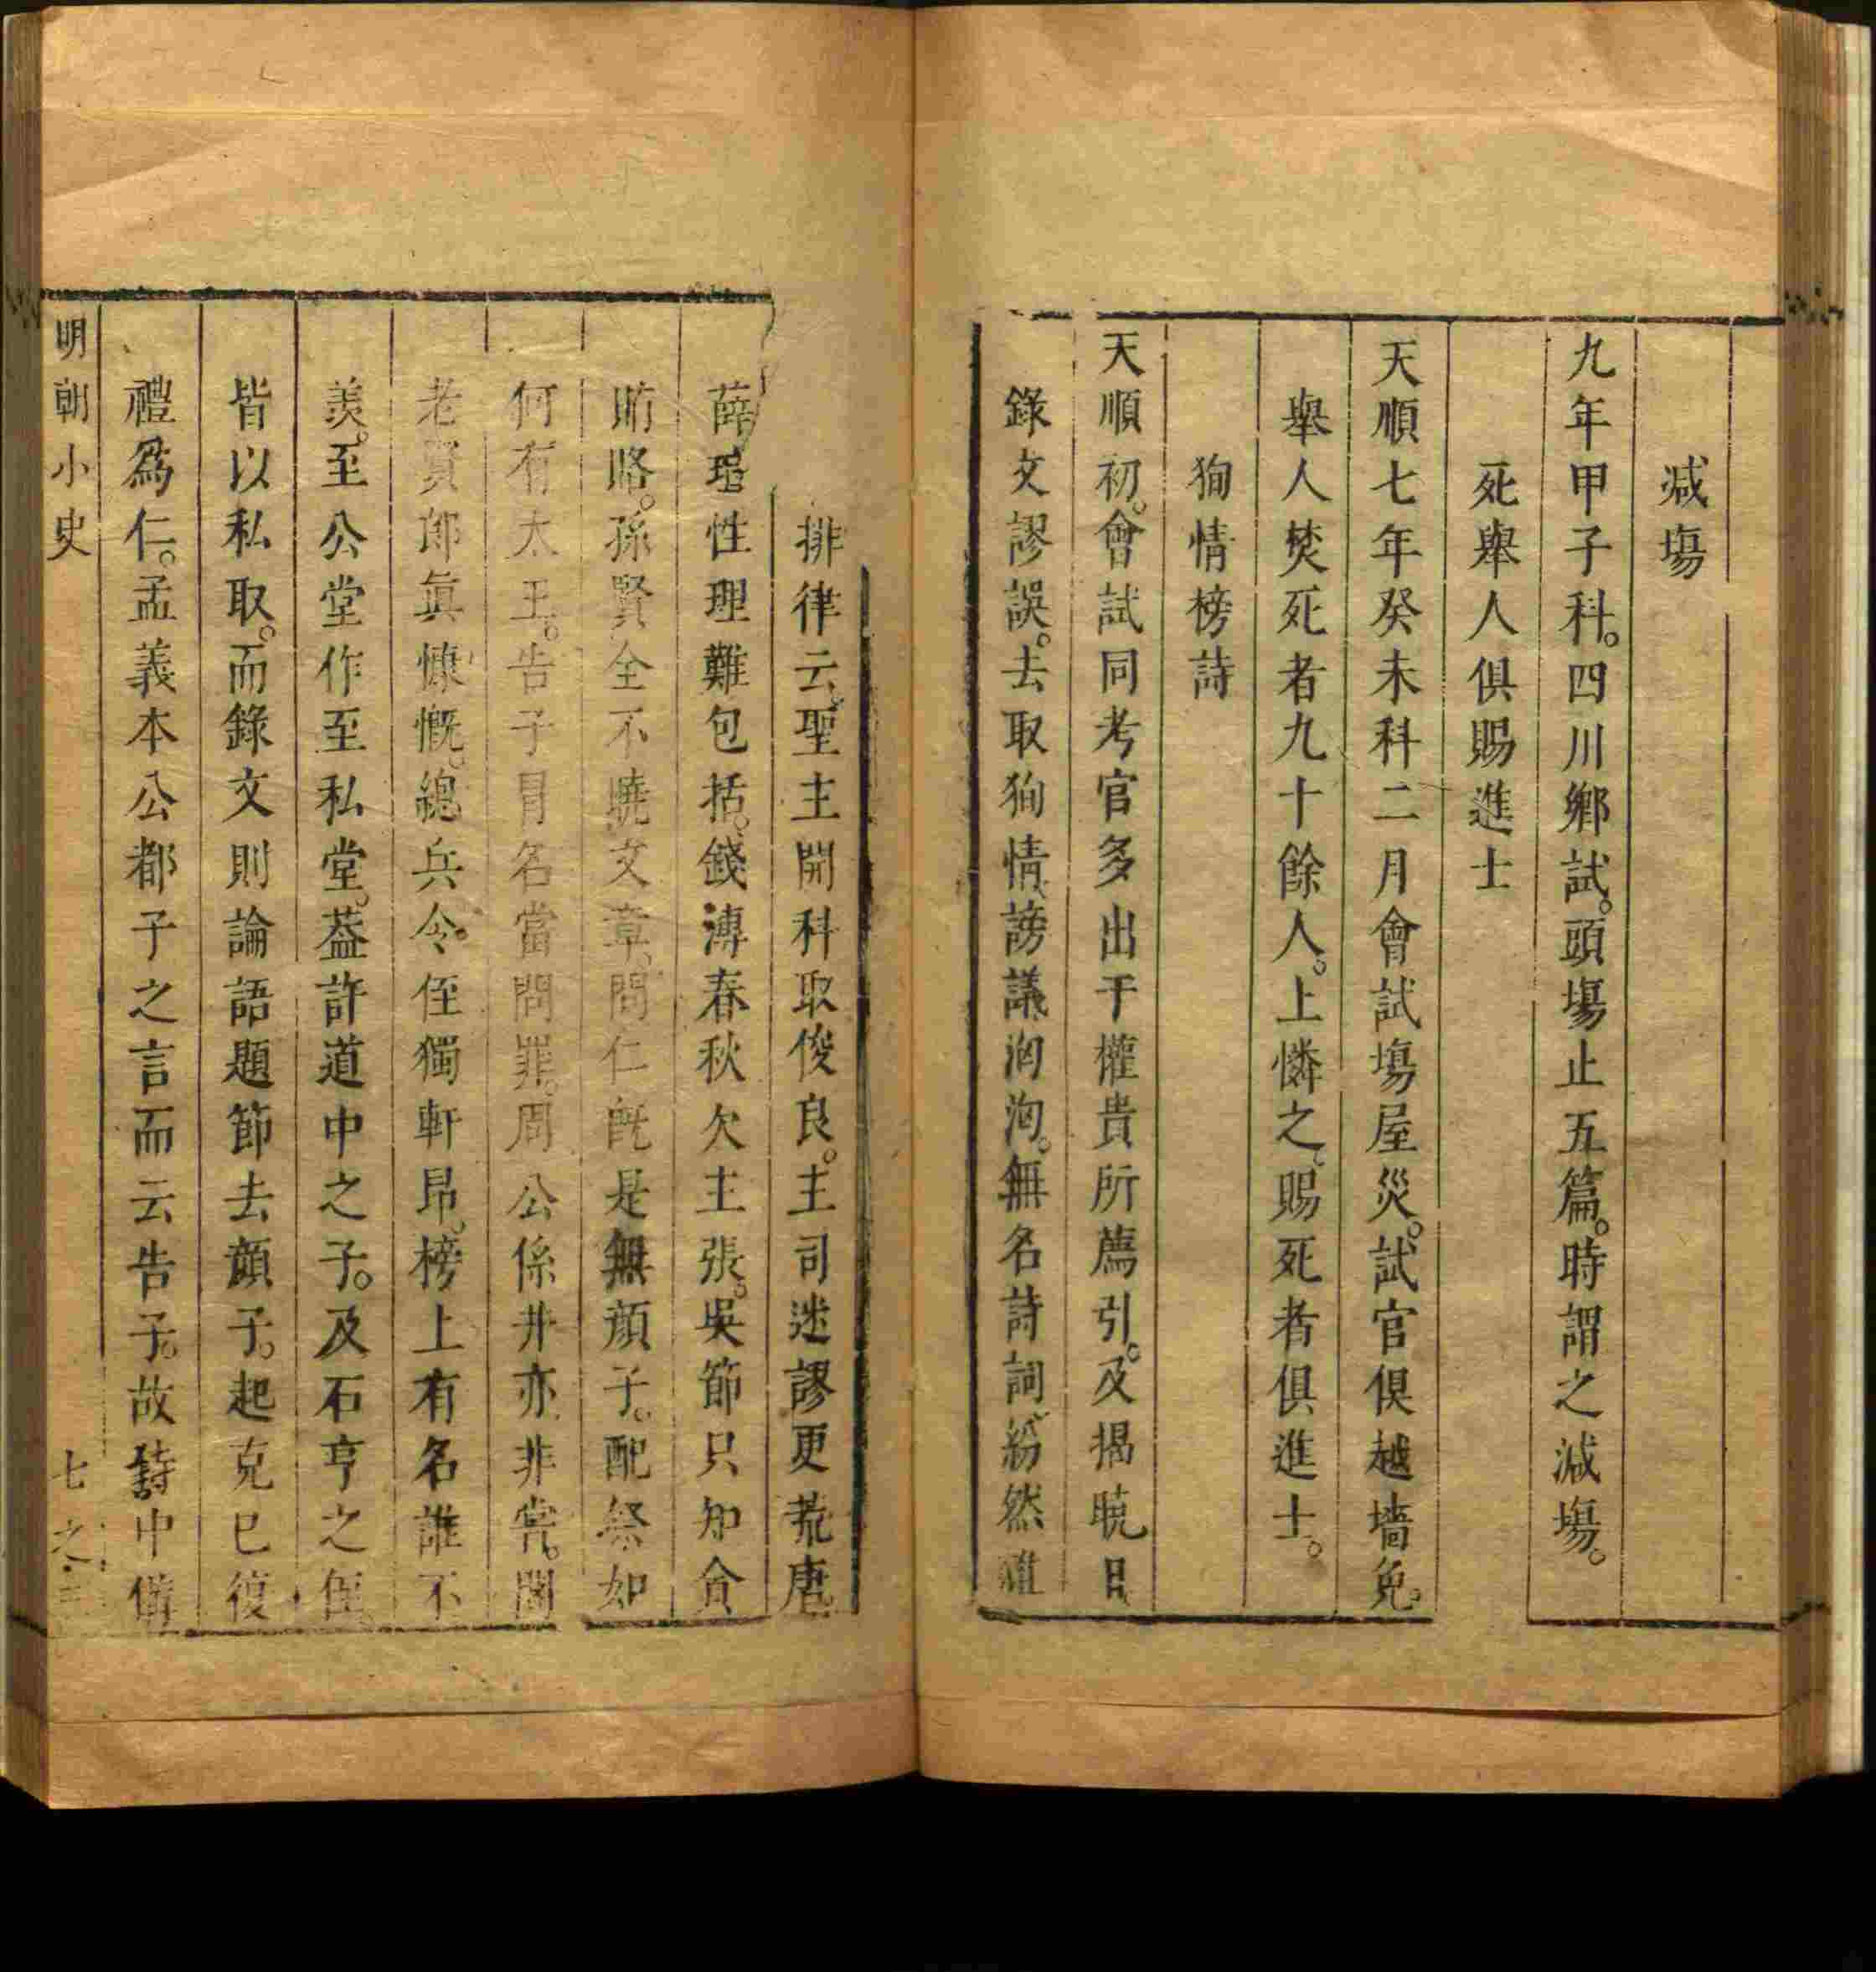 減塲
九年甲子科。四川鄉試。頭塲止五篇。時謂之減塲。
死舉人俱賜進士
天順七年癸未科二月會試塲屋災。試官俱越墻免。
舉人焚死者九十餘人。上憐之。賜死者俱進士。
狥情榜詩
天順初。會試同考官多出于權貴所薦引。及揭曉日
錄文謬誤。去取狥情。謗議洶洶。無名詩詞。紛然
排律云。聖主開科取俊良。主司迷謬更荒唐。
薛瑄性理難包括。錢溥春秋欠主張。吳節只知貪
賄賂。孫賢全不曉文章。問仁既是無顏子。配祭如
何有太王。告子冒名當問罪。周公係井亦非常。閣
老賢郎眞慷慨。總兵令侄獨軒昂。榜上有名誰不
羨。至公堂作至私堂。蓋許道中之子。及石亨之侄。
皆以私取。而錄文則論語題節去顏子。起克已復
禮爲仁。孟義本公都子之言而云告子。故詩中備
明朝小史
七之